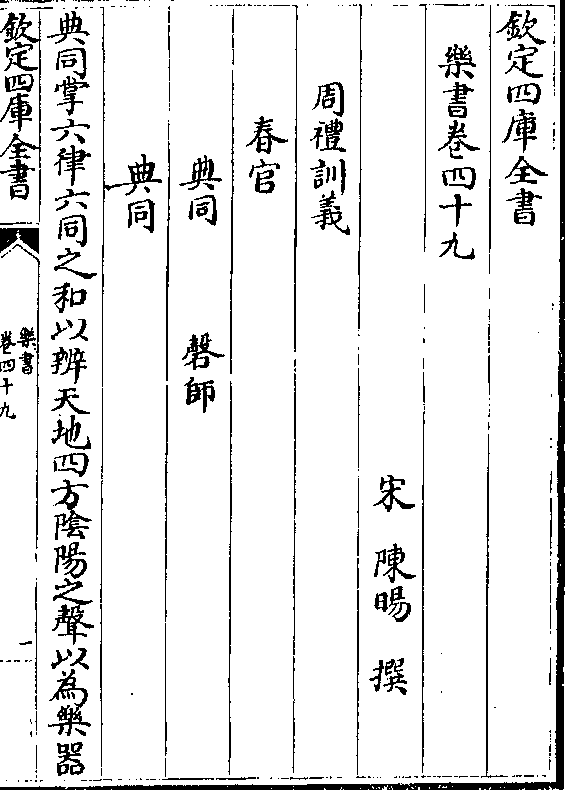 欽定四庫全書
樂書卷四十九
宋 陳暘 撰
周禮訓義
春官
典同 磬師
典同
典同掌六律六同之和以辨天地四方陰陽之聲以為樂器
欽定四庫全書
樂書
卷四十九
一